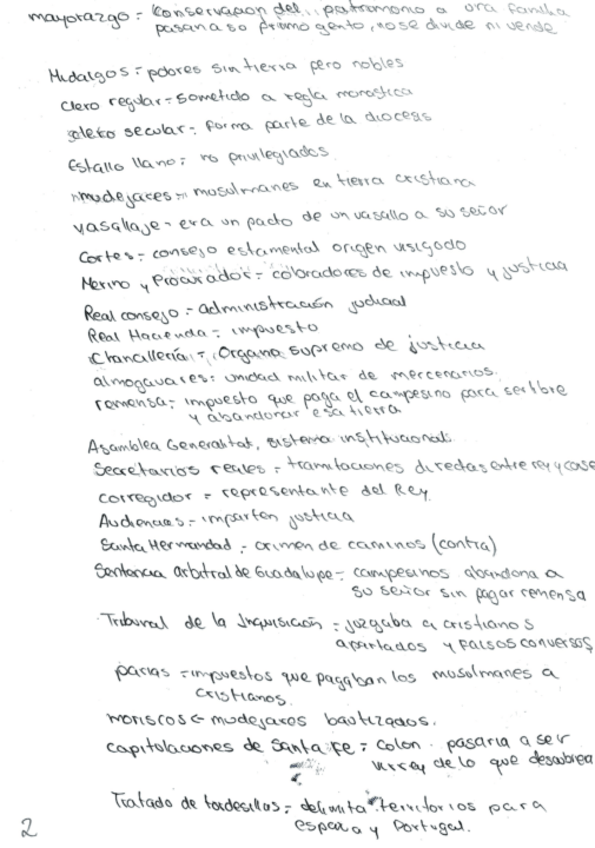 mayorazgo = Conservacion del patromonio a una familia
pasan a so primogento, no se divide ni vende
Hidalgos = pobres sin tierra pero nobles
Clero regular = sometido a regla monastica
clero secular = forma parte de la diocesis
Estallo llano = no privilegiados
mudejares = musulmanes en tierra cristiana
vasallaje = era un pacto de un vasallo a su señor
Cortes = consejo estamental origen visigodo
Merino y Procurador = cobradores de impuesto y justicia
Real consejo = administración judicial
Real Hacienda = impuesto
Chancillería = Organo supremo de justicia
almogavares = unidad militar de mercenarios
remensa = impuesto que paga el campesino para ser libre
y abandonar esa tierra
Asamblea Generalitat, sistema institucional
Secretarios reales = tramitaciones directas entre rey y
corregidor = representante del Rey
Audiencias = imparten justicia
Santa Hermandad = crimen de caminos (contra)
Sentencia arbitral de Guadalupe = campesinos abandona a
su señor sin pagar remensa
Tribunal de la Inquisición = juzgaba a cristianos
apartados y falsos conversos
parias = impuestos que pagaban los musulmanes a
cristianos.
moriscos = mudejares bautizados.
capitulaciones de Santa Fe = Colon pasaria a ser
virrey de lo que descubrea
Tratado de tordesillas = delimita territorios para
españa y Portugal.
2